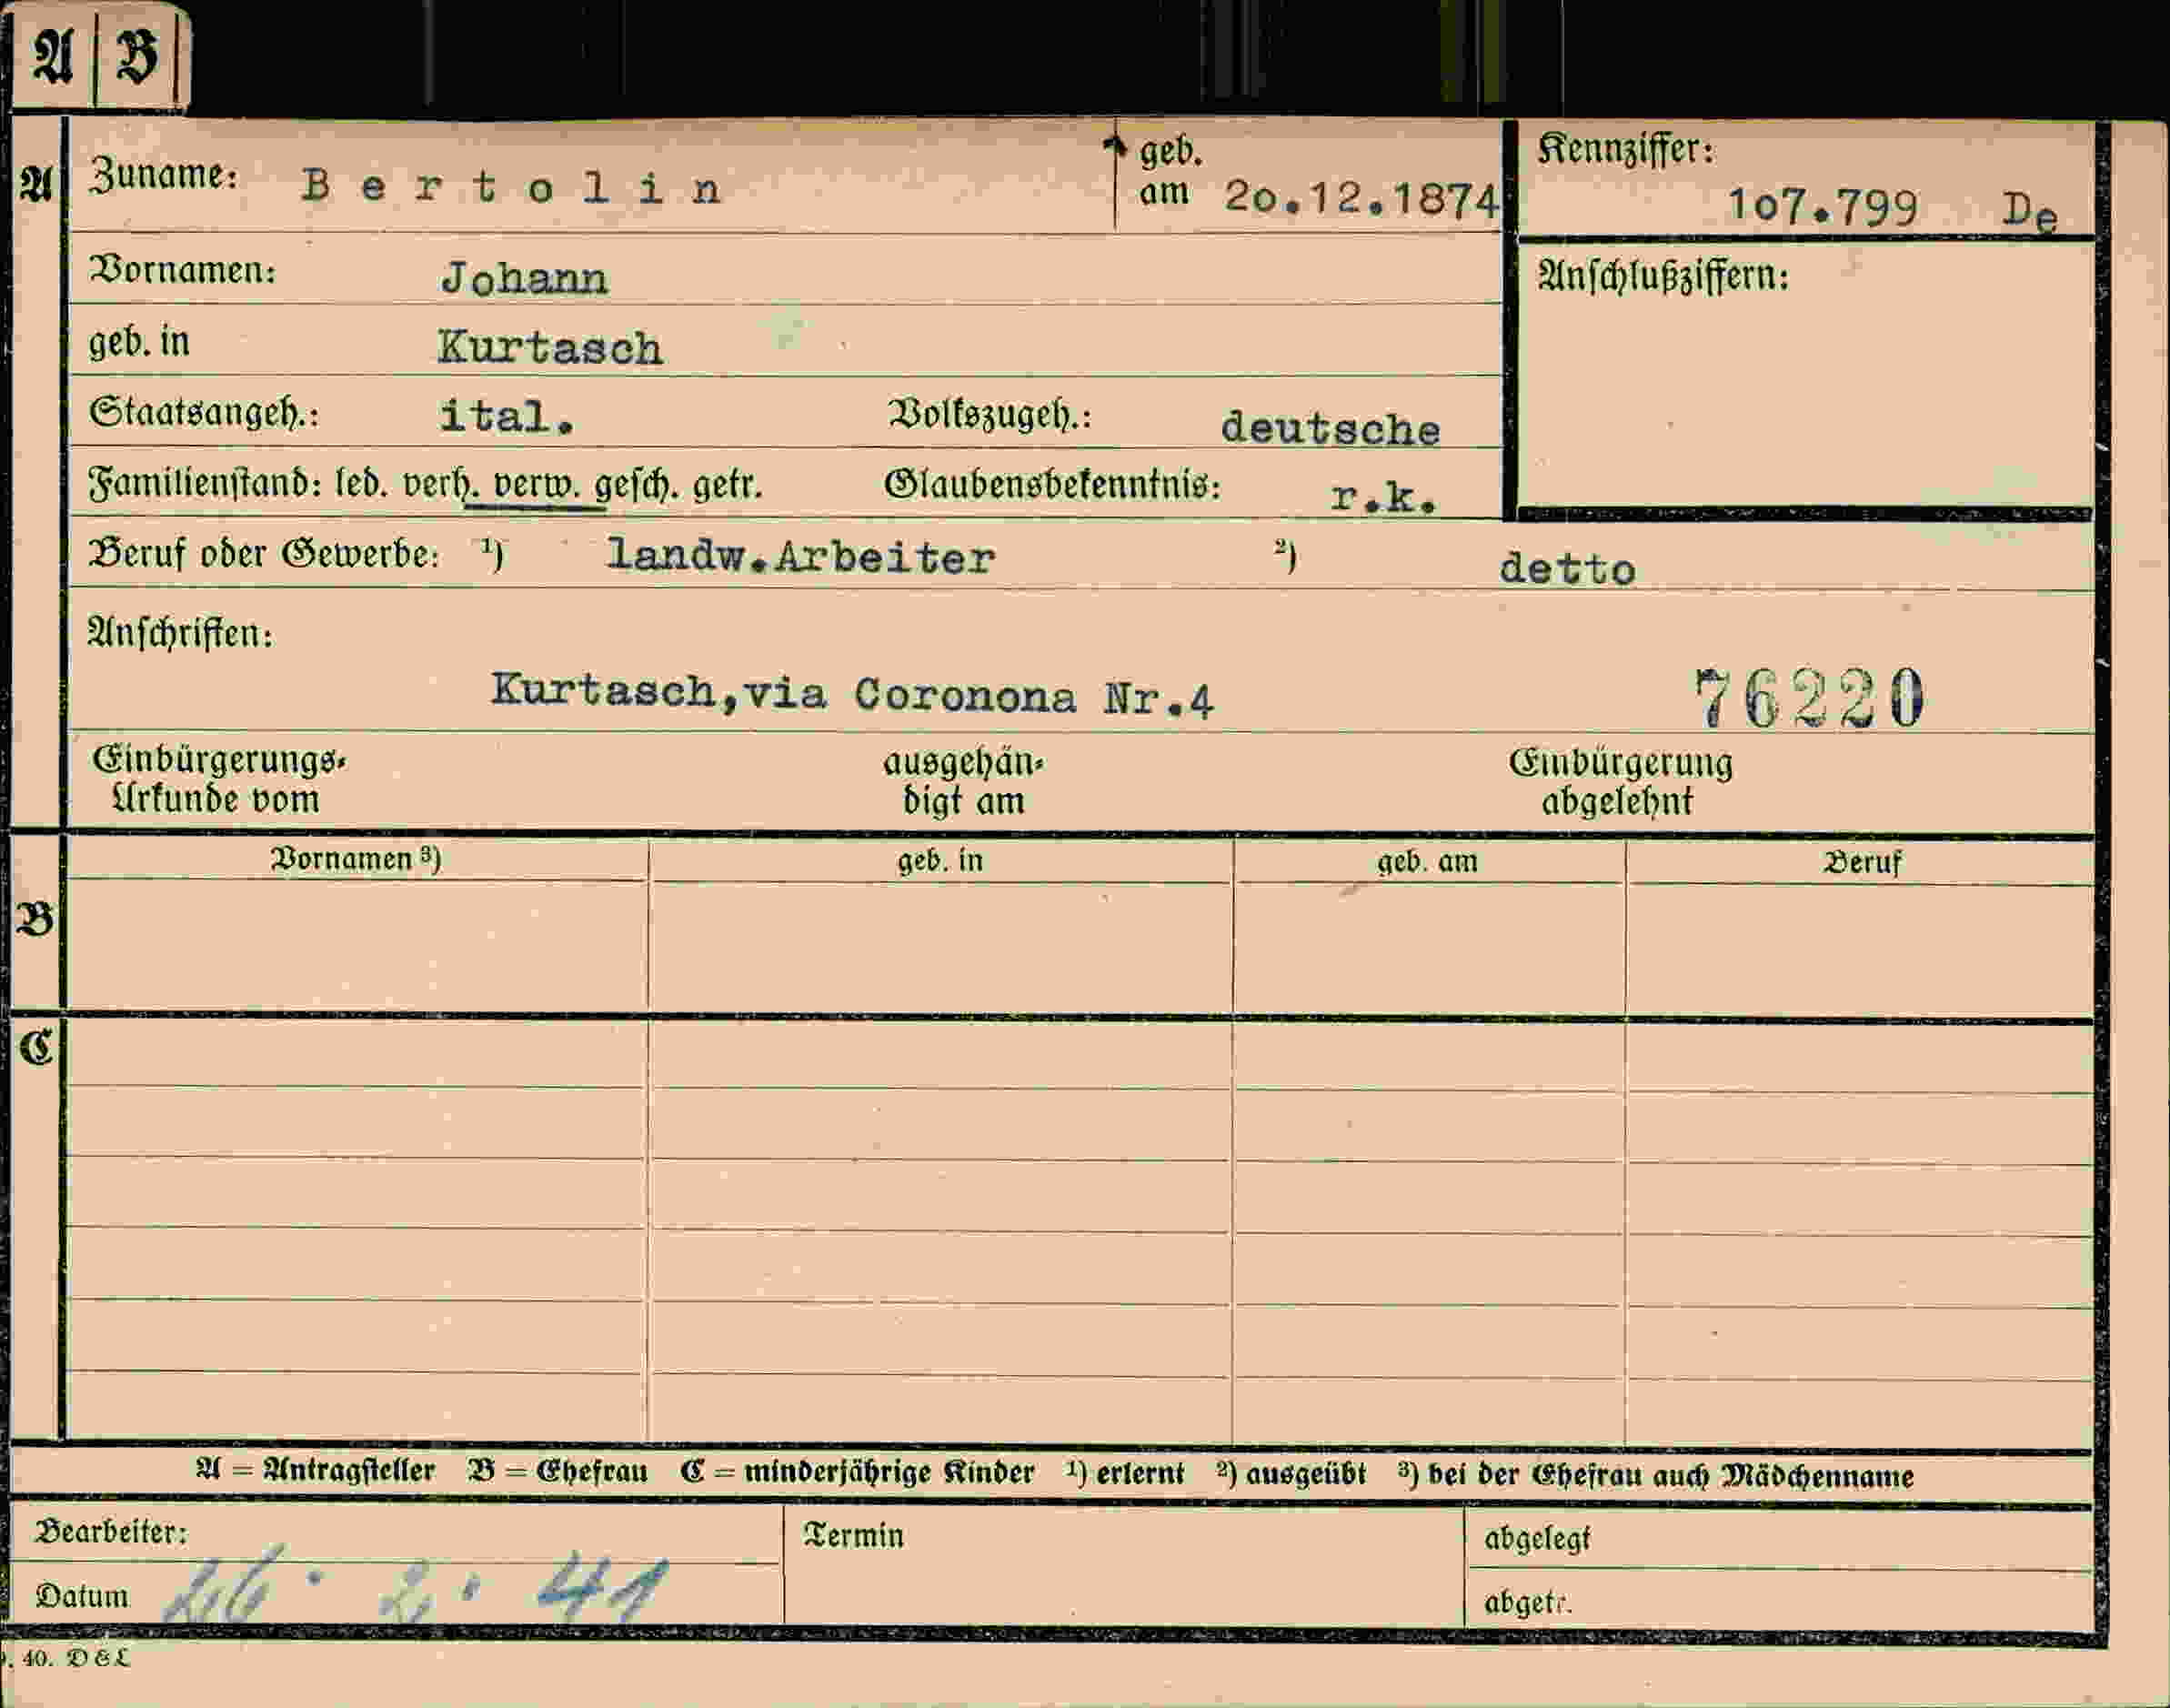 A B
A Zuname: Bertolin geb. am 2o.12.1874 Kennziffer: 1o7.799 De
Vornamen: Johann Anschlußziffern:
geb. in Kurtasch
Staatsangeh.: ital. Volkszugeh.: deutsche
Familienstand: led. verh. verw. gesch. getr. Glaubensbekenntnis: r.k.
Beruf oder Gewerbe: ¹) landw.Arbeiter ²) detto
Anschriften:
Kurtasch,via Coronona Nr.4 76220
Einbürgerungs- ausgehän- Einbürgerung
Urkunde vom digt am abgelehnt
Vornamen ³) geb. in geb. am Beruf
B
C
A = Antragsteller B = Ehefrau C = minderjährige Kinder ¹) erlernt ²) ausgeübt ³) bei der Ehefrau auch Mädchenname
Bearbeiter: Termin abgelegt
Datum 26. 2. 41 abgetr.
. 40. D & L